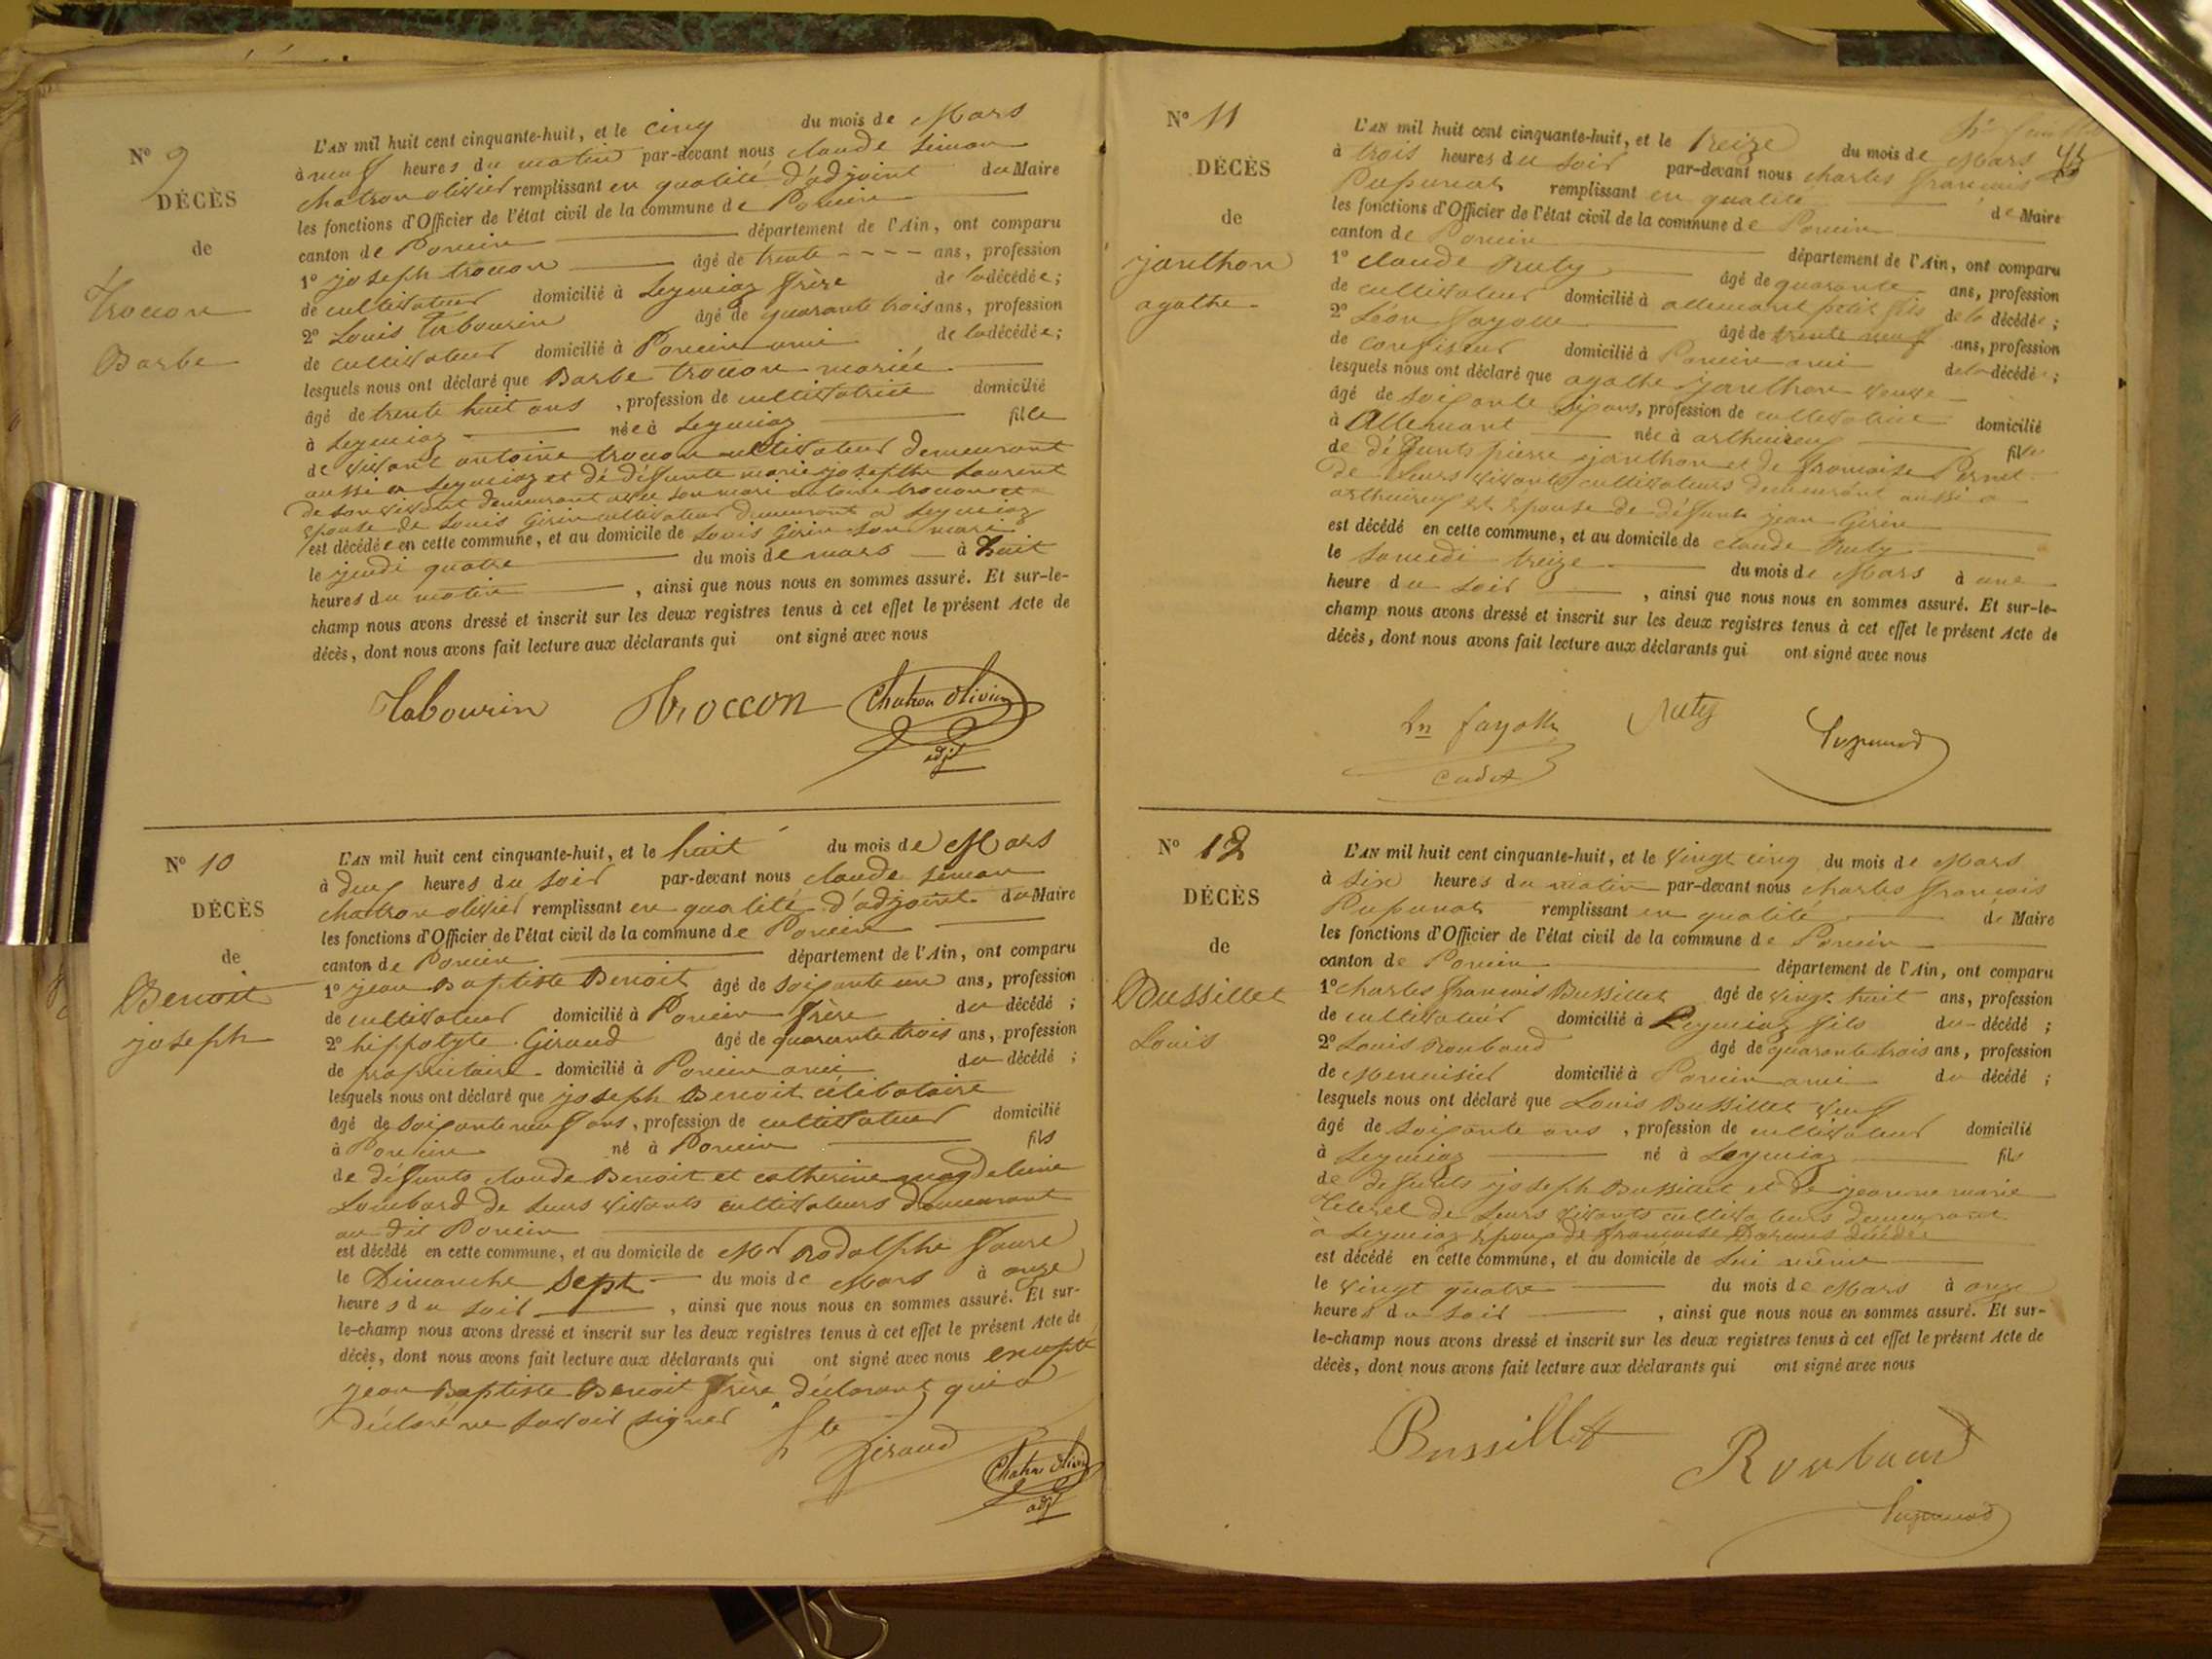 N° 9
DÉCÈS
de
Trocon
Barbe
L'AN mil huit cent cinquante-huit, et le cinq du mois de Mars
à neuf heures du matin par-devant nous claude Simon
chatron olivier remplissant en qualité d'adjoint du Maire
les fonctions d'Officier de l'état civil de la commune de Poncin
canton de Poncin département de l'Ain, ont comparu
1° joseph trocon âgé de trente ans, profession
de cultivateur domicilié à Leymiaz frère de la décédée;
2° Louis Tabourin âgé de quarante trois ans, profession
de cultivateur domicilié à Poncin ami de la décédée;
lesquels nous ont déclaré que Barbe trocon mariée
âgé de trente huit ans, profession de cultivatrice domicilié
à Leymiaz née à Leymiaz fille
de vivant antoine trocon cultivateur demeurant
aussi a Leymiaz et de défunte marie josephte Laurent
de son vivant demeurant avec son mari antoine trocon et
épouse de Louis Girin cultivateur demeurant a Leymiaz
est décédée en cette commune, et au domicile de Louis Girin son mari
le jeudi quatre du mois de mars à huit
heures du matin, ainsi que nous nous en sommes assuré. Et sur-le-
champ nous avons dressé et inscrit sur les deux registres tenus à cet effet le présent Acte de
décès, dont nous avons fait lecture aux déclarants qui ont signé avec nous
Tabourin Troccon Chatron Olivier
adjt
N° 10
DÉCÈS
de
Benoit
joseph
L'AN mil huit cent cinquante-huit, et le huit du mois de Mars
à deux heures du soir par-devant nous claude Simon
chatron olivier remplissant en qualité d'adjoint du Maire
les fonctions d'Officier de l'état civil de la commune de Poncin
canton de Poncin département de l'Ain, ont comparu
1° jean Baptiste Benoit âgé de soixante un ans, profession
de cultivateur domicilié à Poncin frère du décédé;
2° hippolyte Giraud âgé de quarante trois ans, profession
de propriétaire domicilié à Poncin ami du décédé;
lesquels nous ont déclaré que joseph Benoit célibataire
âgé de soixante neuf ans, profession de cultivateur domicilié
à Poncin né à Poncin fils
de défunts claude Benoit et catherine magdeleine
Lombard de leurs vivants cultivateurs demeurant
au dit Poncin
est décédé en cette commune, et au domicile de Mr Rodolphe faure
le Dimanche sept du mois de Mars à onze
heures du soir, ainsi que nous nous en sommes assuré. Et sur-
le-champ nous avons dressé et inscrit sur les deux registres tenus à cet effet le présent Acte de
décès, dont nous avons fait lecture aux déclarants qui ont signé avec nous excepté
jean Baptiste Benoit frère déclarant qui a
déclaré ne savoir signer
hte Giraud Chatron Olivier
adjt
N° 11
DÉCÈS
de
janthon
agathe
L'AN mil huit cent cinquante-huit, et le treize du mois de Mars
à trois heures du soir par-devant nous charles françois
Pupunat remplissant en qualité de Maire
les fonctions d'Officier de l'état civil de la commune de Poncin
canton de Poncin département de l'Ain, ont comparu
1° claude Ruty âgé de quarante ans, profession
de cultivateur domicilié à allement petit fils de la décédée;
2° Léon fayolle âgé de trente neuf ans, profession
de confiseur domicilié à Poncin ami de la décédée;
lesquels nous ont déclaré que agathe janthon veuve
âgé de soixante six ans, profession de cultivatrice domicilié
à Allement née à arthuireux fille
de défunts pierre janthon et de françoise Pernet
de leurs vivants cultivateurs demeurant aussi a
arthuireux et épouse de défunt jean Girin
est décédé en cette commune, et au domicile de claude Ruty
le samedi treize du mois de Mars à une
heure du soir, ainsi que nous nous en sommes assuré. Et sur-le-
champ nous avons dressé et inscrit sur les deux registres tenus à cet effet le présent Acte de
décès, dont nous avons fait lecture aux déclarants qui ont signé avec nous
Ln fayolle Ruty Pupunat
cadet
N° 12
DÉCÈS
de
Bussillet
Louis
L'AN mil huit cent cinquante-huit, et le vingt cinq du mois de Mars
à six heures du matin par-devant nous charles françois
Pupunat remplissant en qualité de Maire
les fonctions d'Officier de l'état civil de la commune de Poncin
canton de Poncin département de l'Ain, ont comparu
1° charles françois Bussillet âgé de vingt huit ans, profession
de cultivateur domicilié à Leymiaz fils du décédé;
2° Louis Roubaud âgé de quarante trois ans, profession
de Menuisier domicilié à Poncin ami du décédé;
lesquels nous ont déclaré que Louis Bussillet veuf
âgé de soixante ans, profession de cultivateur domicilié
à Leymiaz né à Leymiaz fils
de défunts joseph Bussillet et de jeanne marie
de leurs vivants cultivateurs demeurant
à Leymiaz époux de françoise
est décédé en cette commune, et au domicile de lui même
le vingt quatre du mois de Mars à onze
heures du soir, ainsi que nous nous en sommes assuré. Et sur-
le-champ nous avons dressé et inscrit sur les deux registres tenus à cet effet le présent Acte de
décès, dont nous avons fait lecture aux déclarants qui ont signé avec nous
Bussillet Roubaud
Pupunat